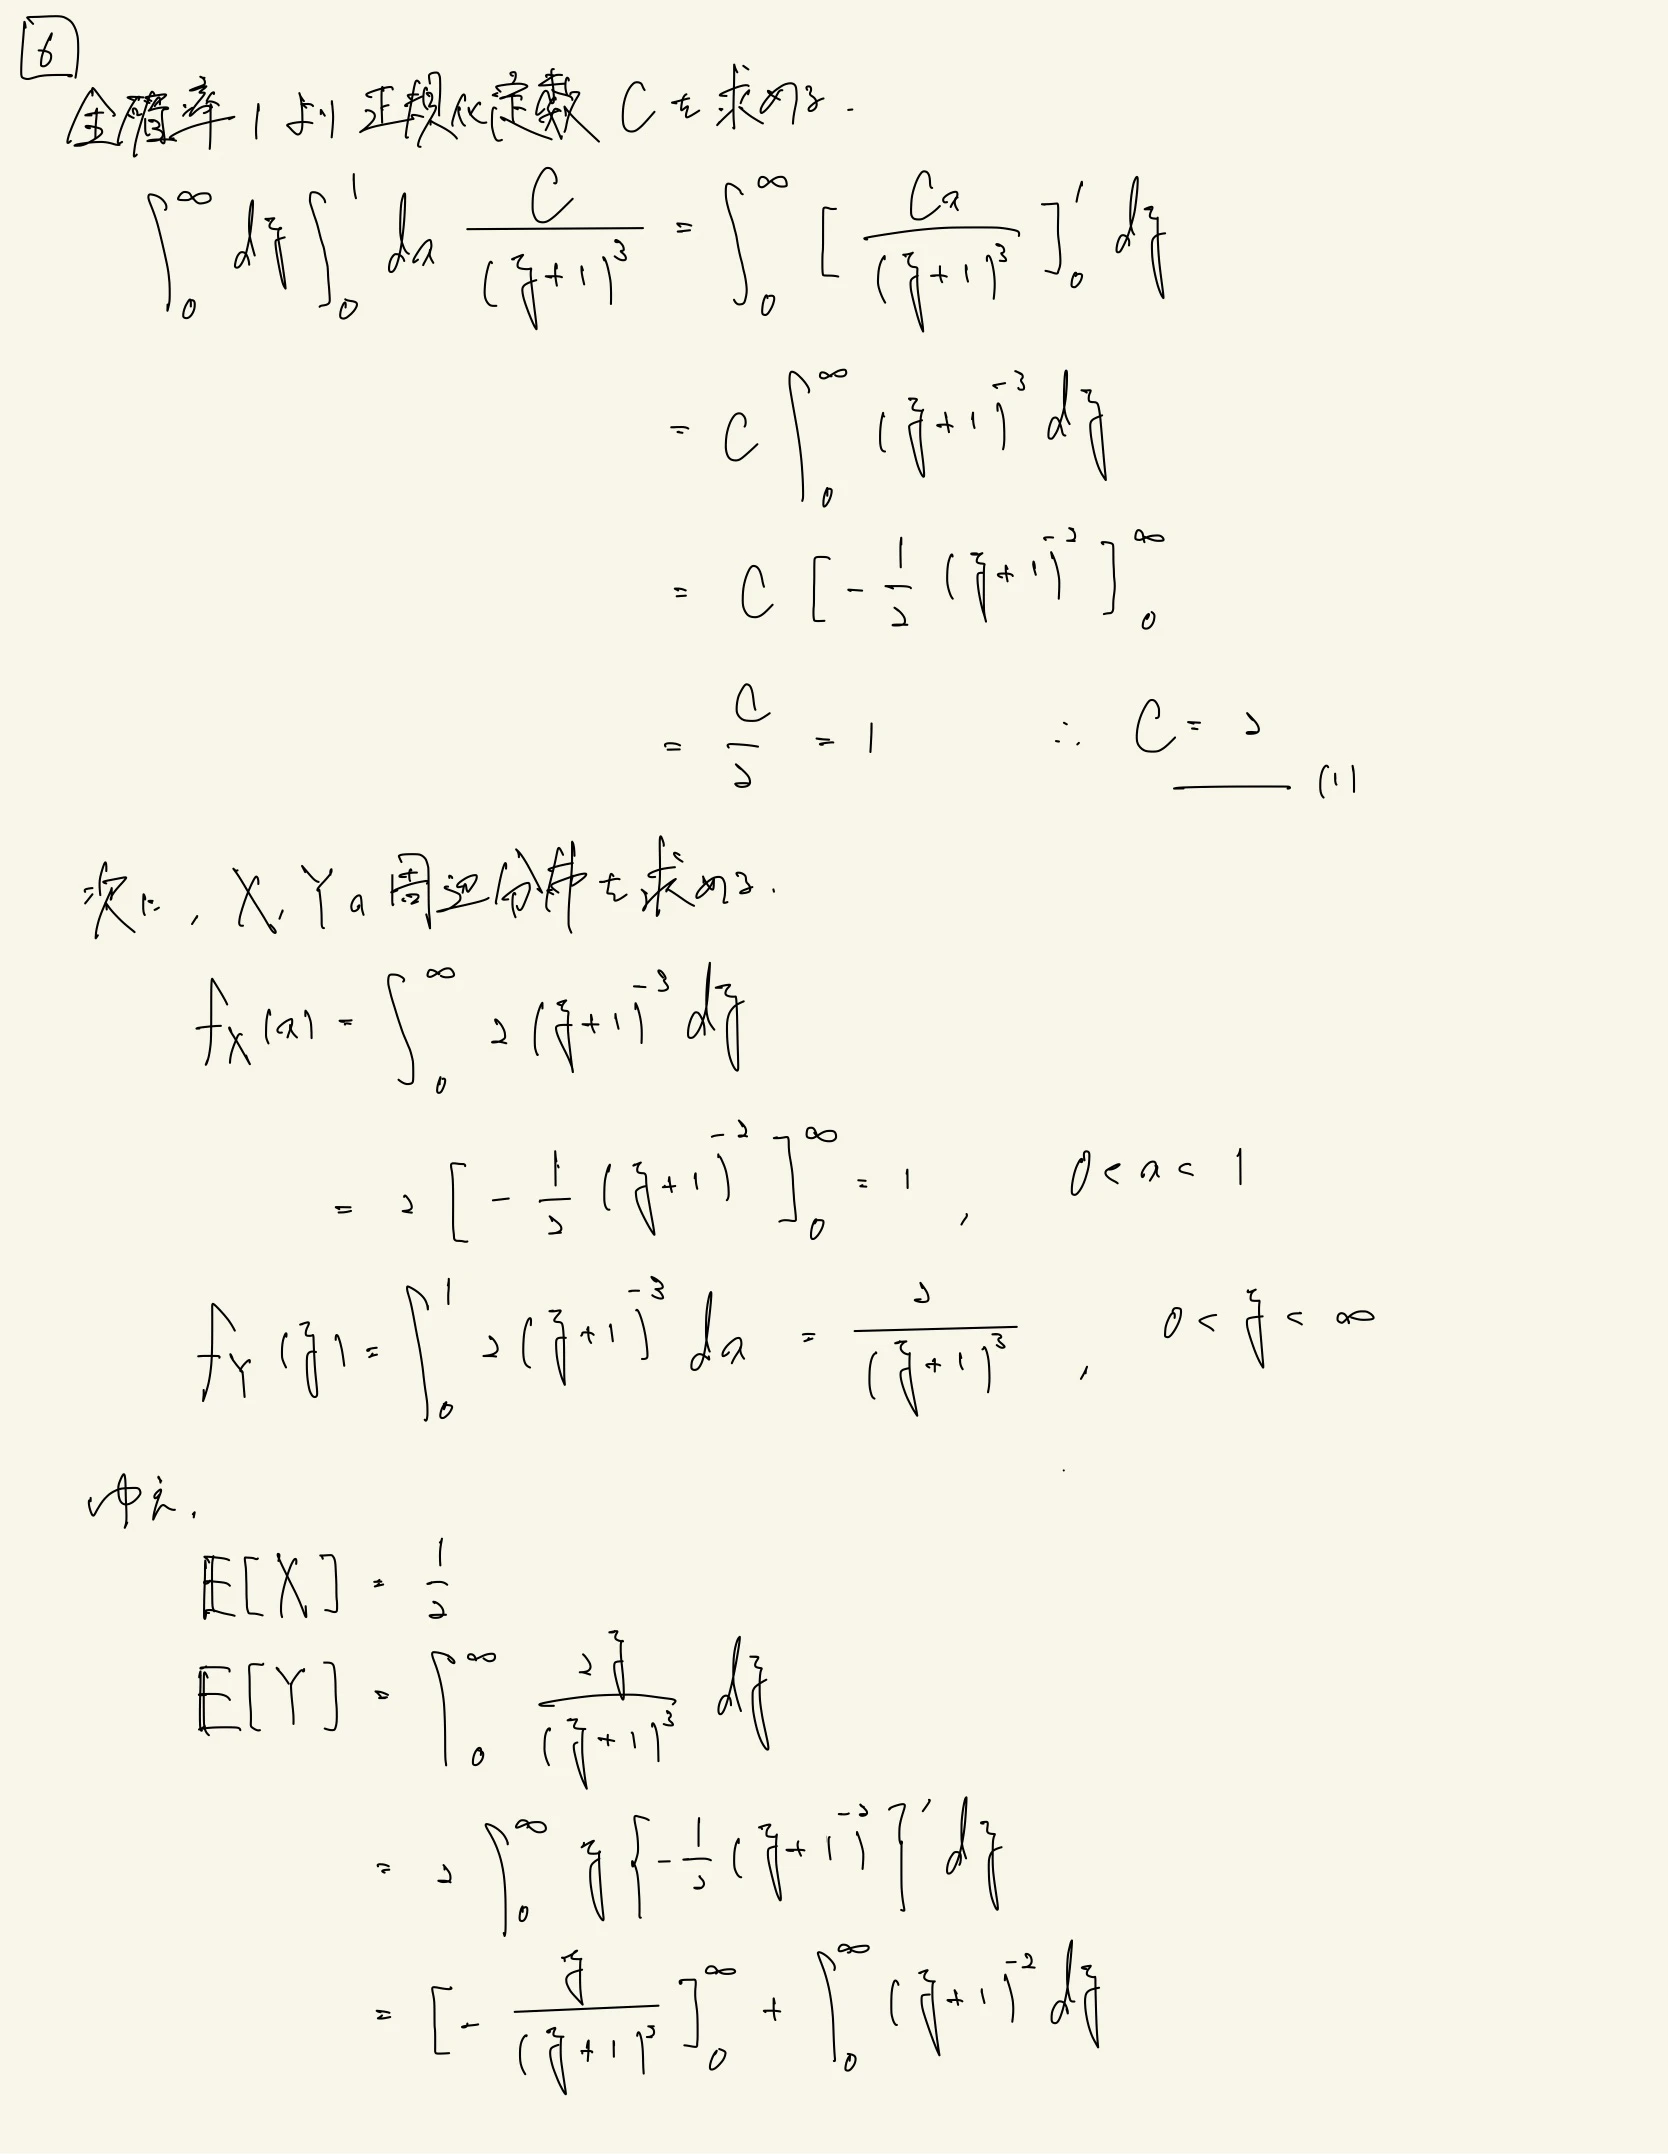 6
全確率1より正規化定数Cを求める.
∫_0^∞ dy ∫_0^1 dx C/(y+1)^3 = ∫_0^∞ [Cx/(y+1)^3]_0^1 dy
= C ∫_0^∞ (y+1)^{-3} dy
= C [-1/2 (y+1)^{-2}]_0^∞
= C/2 = 1 ∴ C = 2 (1)
次に, X, Yの周辺分布を求める.
f_X(x) = ∫_0^∞ 2(y+1)^{-3} dy
= 2 [-1/2 (y+1)^{-2}]_0^∞ = 1, 0 < x < 1
f_Y(y) = ∫_0^1 2(y+1)^{-3} dx = 2/(y+1)^3, 0 < y < ∞
ゆえ,
E[X] = 1/2
E[Y] = ∫_0^∞ 2y/(y+1)^3 dy
= 2 ∫_0^∞ y {-1/2 (y+1)^{-2}}' dy
= [-y/(y+1)^2]_0^∞ + ∫_0^∞ (y+1)^{-2} dy